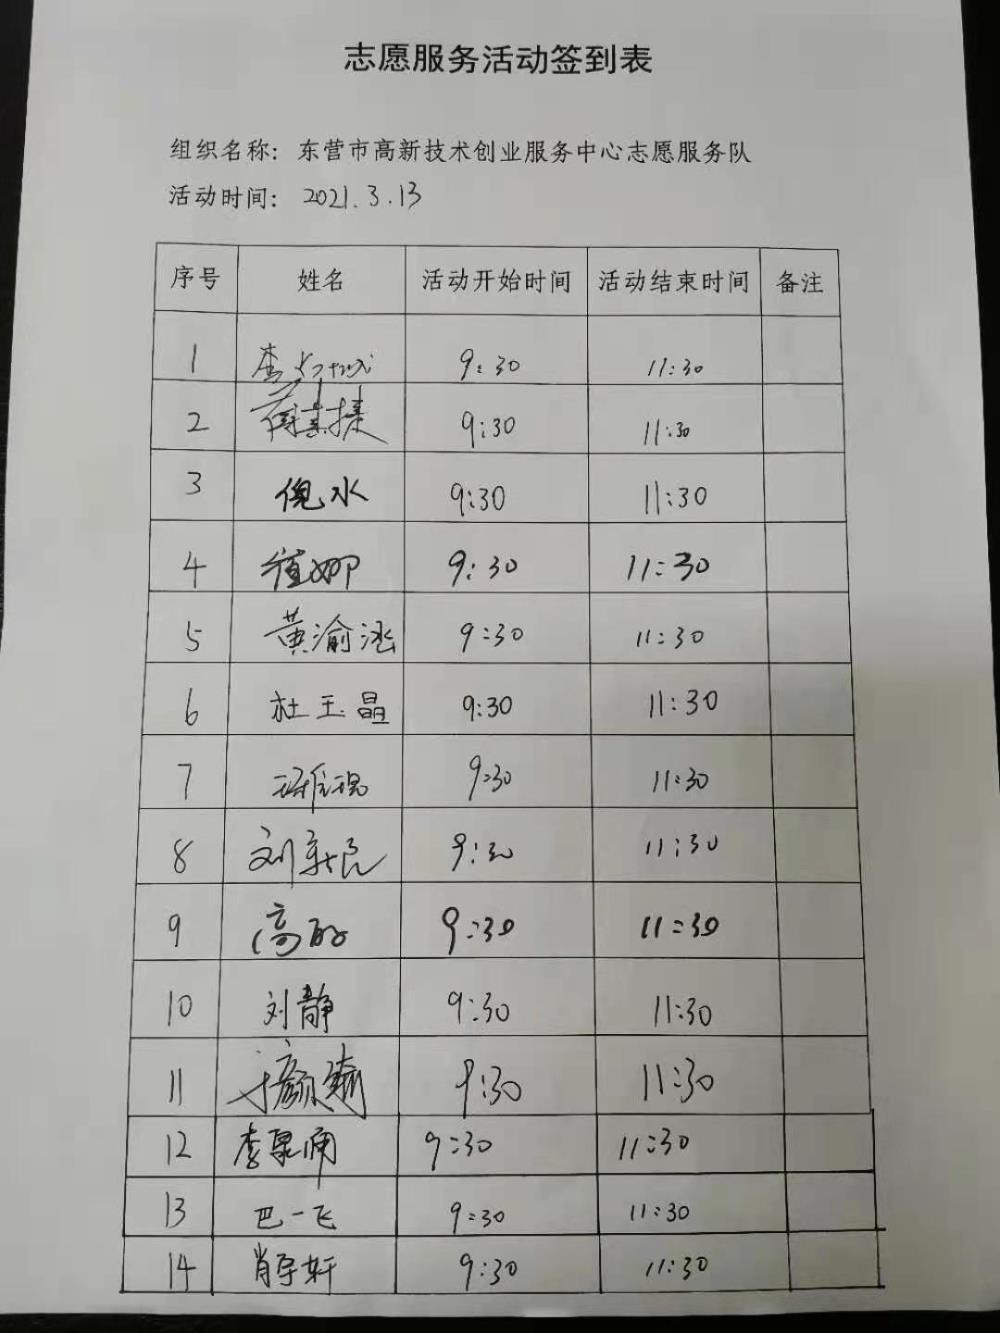 志愿服务活动签到表
组织名称：东营市高新技术创业服务中心志愿服务队
活动时间：2021.3.13
序号 姓名 活动开始时间 活动结束时间 备注
1 李 9:30 11:30
2 9:30 11:30
3 倪水 9:30 11:30
4 崔娜 9:30 11:30
5 黄渝涵 9:30 11:30
6 杜玉晶 9:30 11:30
7 9:30 11:30
8 刘新民 9:30 11:30
9 高 9:30 11:30
10 刘静 9:30 11:30
11 9:30 11:30
12 李泉涌 9:30 11:30
13 巴一飞 9:30 11:30
14 肖宇轩 9:30 11:30